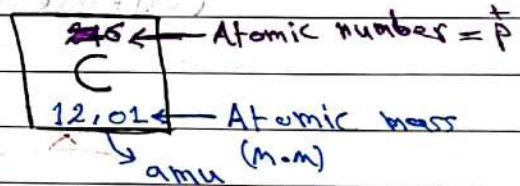 6 ← Atomic number = p⁺
C
12,01 ← Atomic mass
amu (m.m)